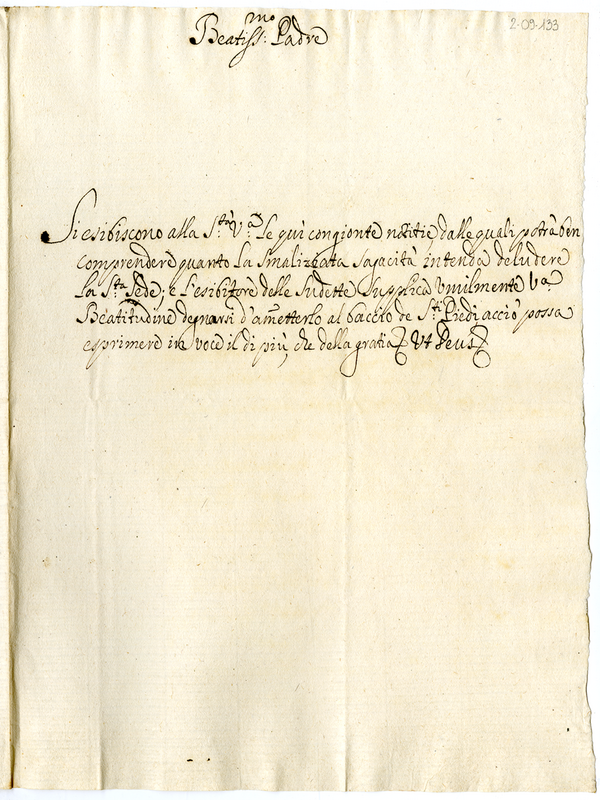 2-09-133
Beatiss:mo Padre
Si esibiscono alla S:tà V:a le qui congionte notitie, dalle quali potrà ben
comprendere quanto la smalizzata sagacità intenda deludere
la S:ta Sede; e l'esibitore delle sudette supplica umilmente V:a
Beatitudine degnarsi d'ametterlo al baccio de S:ti Piedi acciò possa
esprimere in voce il di più, che della gratia Ut Deus